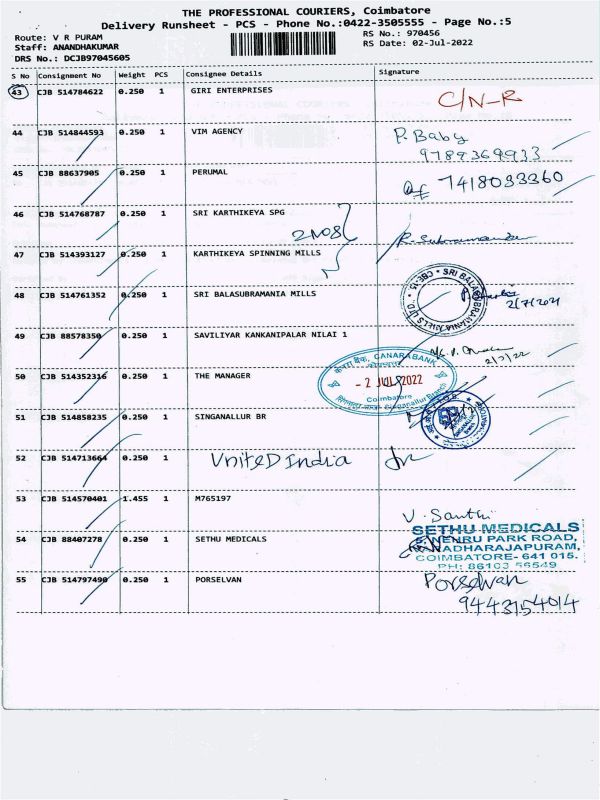 THE PROFESSIONAL COURIERS, Coimbatore
Delivery Runsheet - PCS - Phone No.:0422-3505555 - Page No.:5
Route: V R PURAM
RS No.: 970456
Staff: ANANDHAKUMAR
RS Date: 02-Jul-2022
DRS No.: DCJB97045605
S No Consignment No Weight PCS Consignee Details Signature
43 CJB 514784622 0.250 1 GIRI ENTERPRISES C/N-R
44 CJB 514844593 0.250 1 VIM AGENCY P. Baby
9789369933
45 CJB 88637905 0.250 1 PERUMAL 7418033360
46 CJB 514768787 0.250 1 SRI KARTHIKEYA SPG
2NOS
47 CJB 514393127 0.250 1 KARTHIKEYA SPINNING MILLS
48 CJB 514761352 0.250 1 SRI BALASUBRAMANIA MILLS
SRI BALASUBRAMANIA MILLS LTD. CBE-15
2/7/2021
49 CJB 88578350 0.250 1 SAVILIYAR KANKANIPALAR NILAI 1
2/7/22
केनरा बैंक, CANARA BANK
- 2 JUL 2022
Coimbatore
Singanallur Branch
50 CJB 514352316 0.250 1 THE MANAGER
51 CJB 514858235 0.250 1 SINGANALLUR BR
52 CJB 514713664 0.250 1 UNITED INDIA
53 CJB 514570401 1.455 1 M765197
V. Santhi
54 CJB 88407278 0.250 1 SETHU MEDICALS
SETHU MEDICALS
NEHRU PARK ROAD,
VARADHARAJAPURAM,
COIMBATORE- 641 015.
PH: 86103 56549
55 CJB 514797490 0.250 1 PORSELVAN Porselvan
9443154014